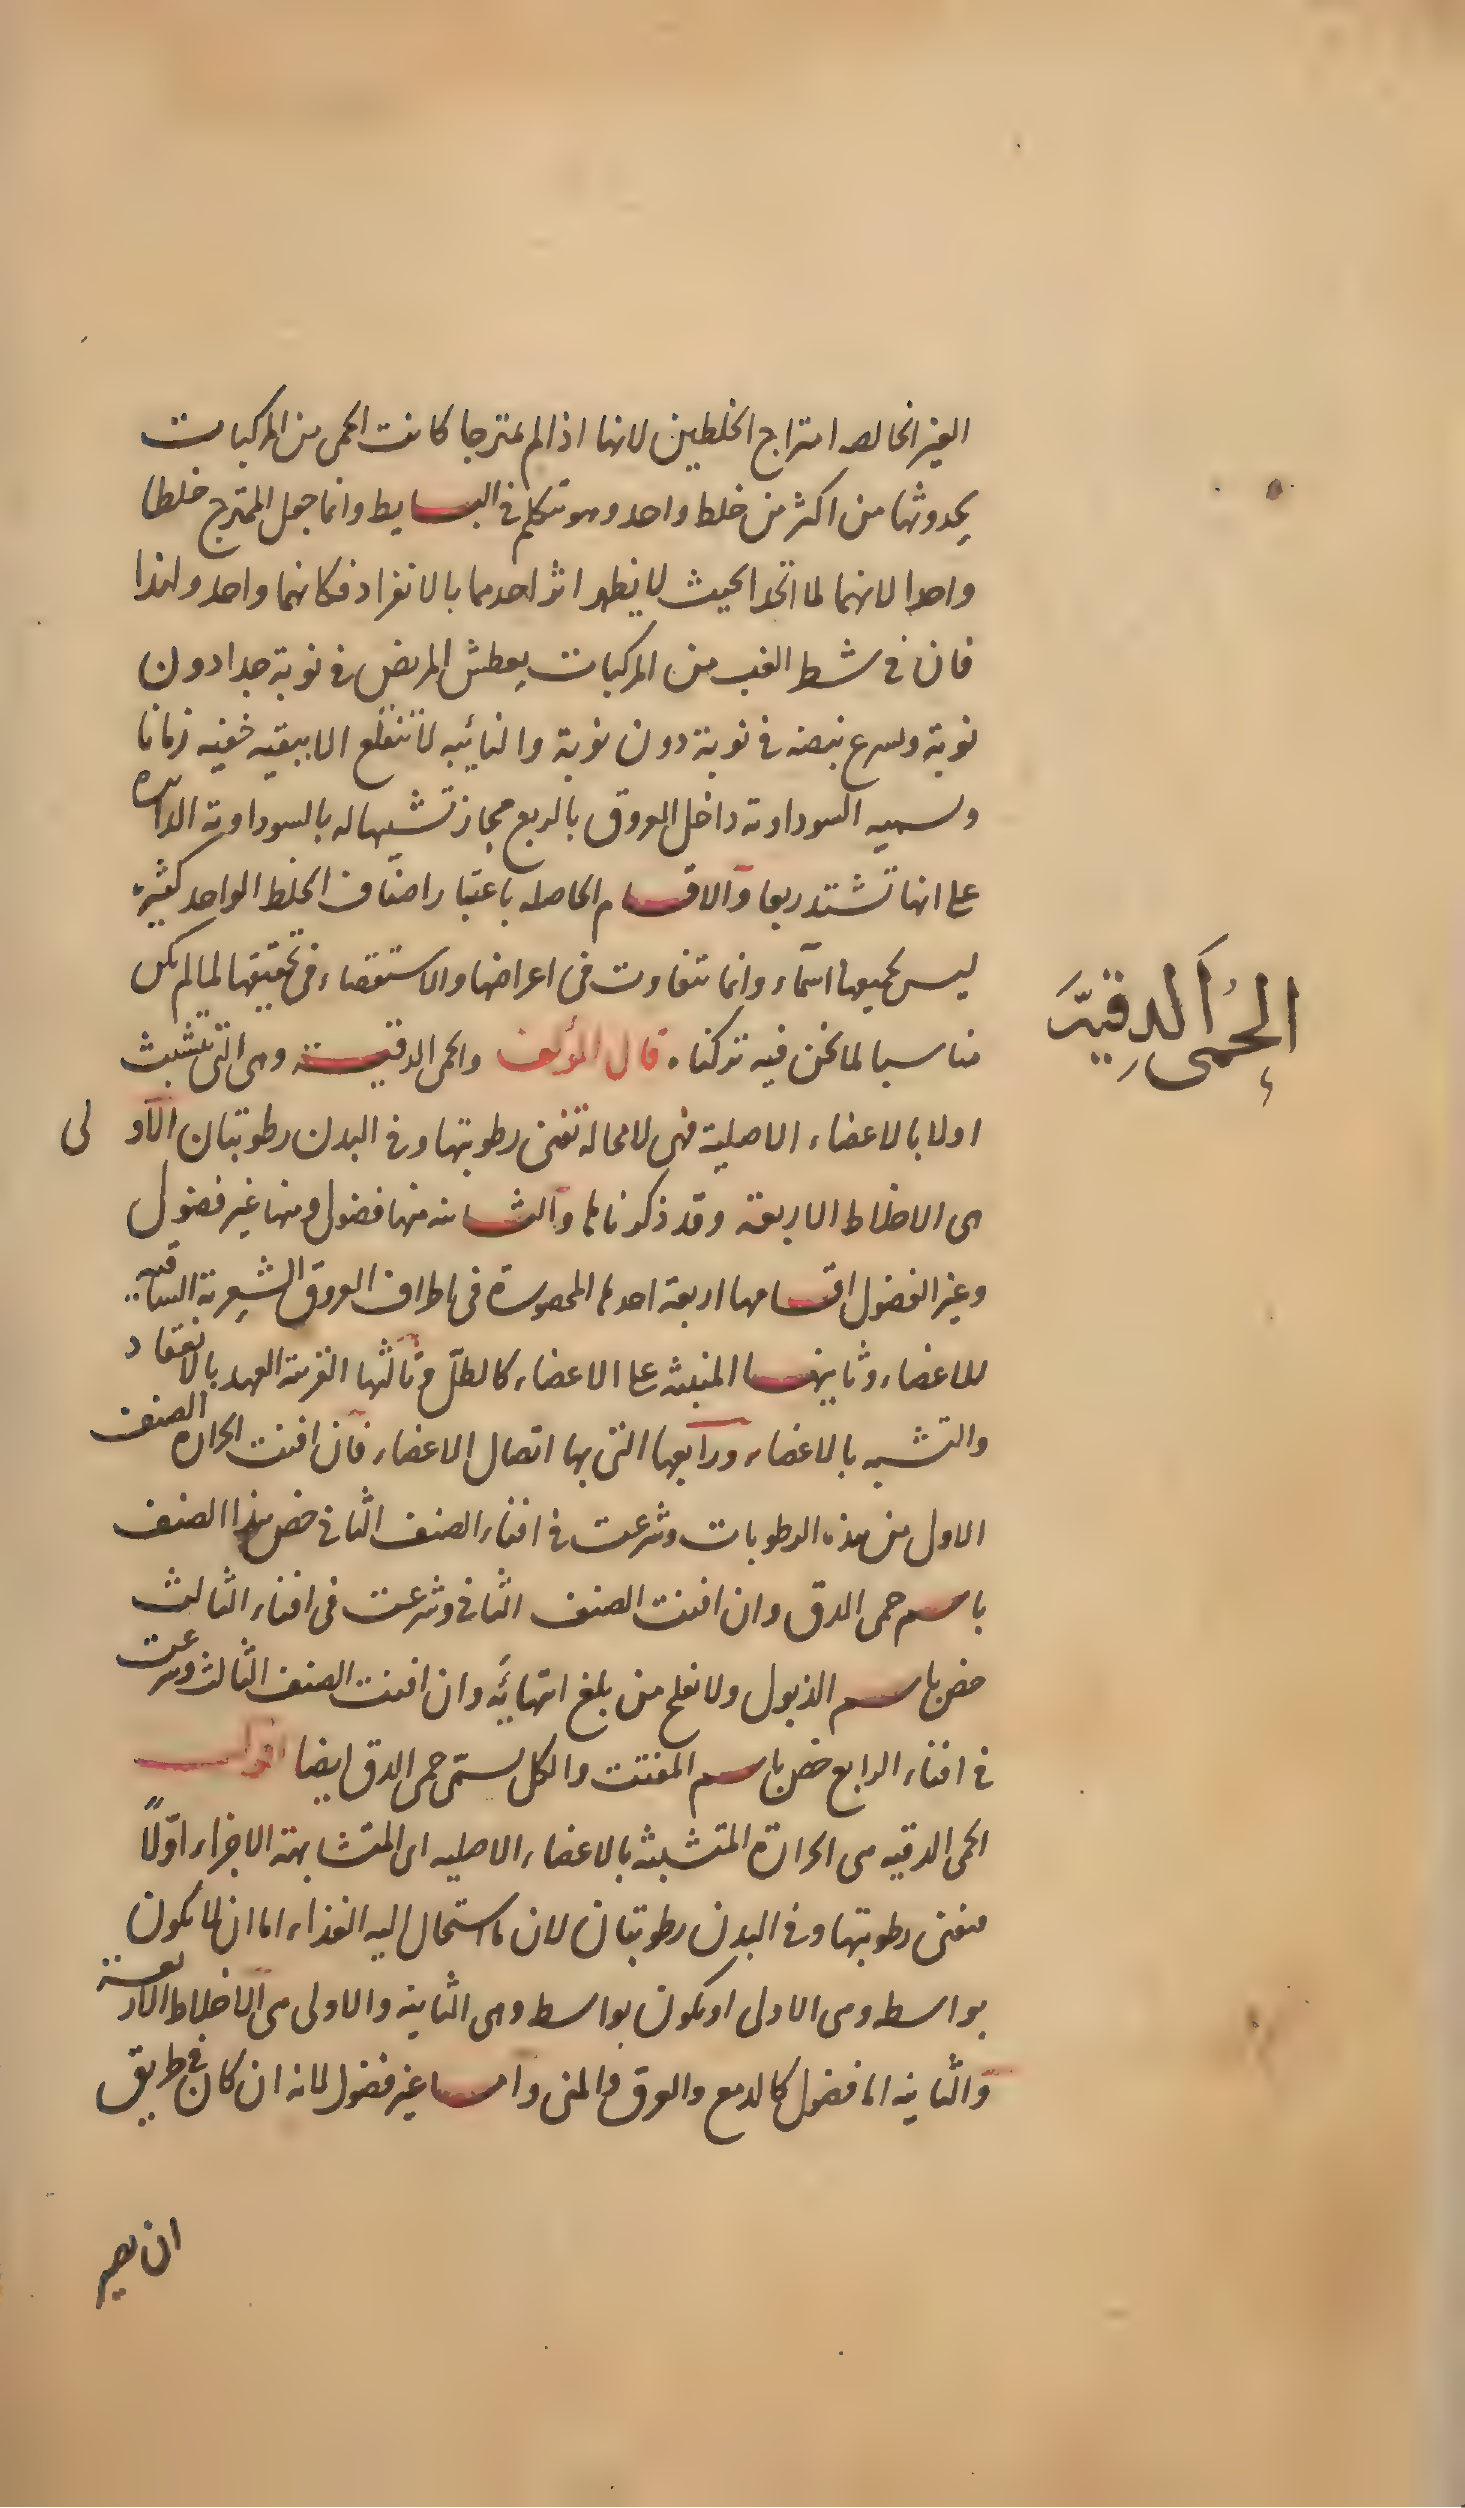 الغير الخالصه امتزاج الخلطين لانها اذا لم يمتزجا كانت الحمى من المركبات
بحدوثها من اكثر من خلط واحد وهو تتكلم فى البسايط وانما جعل الممتزج خلطا
واحدا لانهما لما اتحدا بحيث لا يظهر اثر احدهما بالانفراد فكانهما واحد ولهذا
فان فى شطر الغب من المركبات يعطش المريض فى نوبة جدا دون
نوبة ويسرع نبضه فى نوبة دون نوبة والنائبه لا تنقلع الا ببقيه خفيه زمانا
وتسميه السوداوية داخل العروق بالربع مجاز تشبيها له بالسوداوية الدائره
على انها تشتد ربعا والاقسام الحاصله باعتبار اصناف الخلط الواحد كثيرة
ليس لجميعها اسماء وانما تتفاوت فى اعراضها والاستقصاء فى تحقيقها لما لم يكن
مناسبا لما نحن فيه تركناه قال المؤلف والحمى الدقيسة وهى التى تتشبث
اولا بالاعضاء الاصلية فهى لا محالة تفنى رطوبتها وفى البدن رطوبتان الاولى
هى الاخلاط الاربعة وقد ذكرناها والثانية منها فضول ومنها غير فضول
وغير الفضول اقسامها اربعة احدها المحصورة فى اطراف العروق الشعرية الساقيه
للاعضاء وثانيها المنبثة على الاعضاء كالطل وثالثها القريبة العهد بالانعقاد
والتشبه بالاعضاء ورابعها التى بها اتصال الاعضاء فان افنت الحراره الصنف
الاول من هذه الرطوبات وشرعت فى افناء الصنف الثانى خص هذا الصنف
باسم حمى الدق وان افنت الصنف الثانى وشرعت فى افناء الثالث
خص باسم الذبول ولا يفلح من بلغ انتهائه وان افنت الصنف الثالث وشرعت
فى افناء الرابع خص باسم المفتت والكل يسمى حمى الدق ايضا اقول
الحمى الدقيه هى الحرارة المتشبثة بالاعضاء الاصليه اى المتشابهة الاجزاء اولا
فتفنى رطوبتها وفى البدن رطوبتان لان ما استحال اليه الغذاء اما ان لا يكون
بواسطه وهى الاولى او يكون بواسطه وهى الثانية والاولى هى الاخلاط الاربعة
والثانيه اما فضول كالدمع والعرق والمنى واما غير فضول لانه ان كان فى طريق
ان يصير
الحُمى الدقيّة